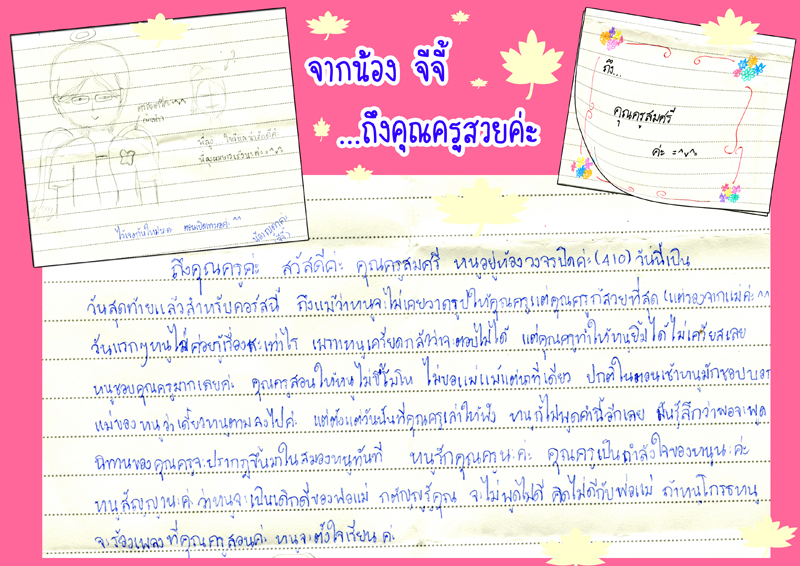 จากน้อง จีจี้
...ถึงคุณครูสวยค่ะ
ถึง...
คุณครูสมศรี
ค่ะ =^v^=
ถึงคุณครูค่ะ สวัสดีค่ะ คุณครูสมศรี หนูอยู่ห้องวงจรปิดค่ะ (410) วันนี้เป็น
วันสุดท้ายแล้วสำหรับคอร์สนี้ ถึงแม้ว่าหนูจะไม่เคยวาดรูปให้คุณครูแต่คุณครูก็สวยที่สุด (แต่รองจากแม่ค่ะ ^^
วันแรกๆหนูไม่ค่อยรู้เรื่องซะเท่าไร เพราะหนูเครียดกลัวว่าจะตอบไม่ได้ แต่คุณครูทำให้หนูยิ้มได้ ไม่เครียดเลย
หนูชอบคุณครูมากเลยค่ะ คุณครูสอนให้หนูไม่ขี้โมโห ไม่ขอแม่แม้แต่นาทีเดียว ปกติในตอนเช้าหนูมักชอบบอก
แม่ของหนูว่าเดี๋ยวหนูตามลงไปค่ะ แต่ตั้งแต่วันนั้นที่คุณครูเล่าให้ฟัง หนูก็ไม่พูดคำนี้อีกเลย มันรู้สึกว่าพอจะพูด
นิทานของคุณครูจะปรากฏขึ้นมาในสมองหนูทันที หนูรักคุณครูนะค่ะ คุณครูเป็นกำลังใจของหนูนะค่ะ
หนูสัญญานะค่ะว่าหนูจะเป็นเด็กดีของพ่อแม่ กตัญญูรู้คุณ จะไม่พูดไม่ดี คิดไม่ดีกับพ่อแม่ ถ้าหนูโกรธหนู
จะร้องเพลงที่คุณครูสอนค่ะ หนูจะตั้งใจเรียนค่ะ